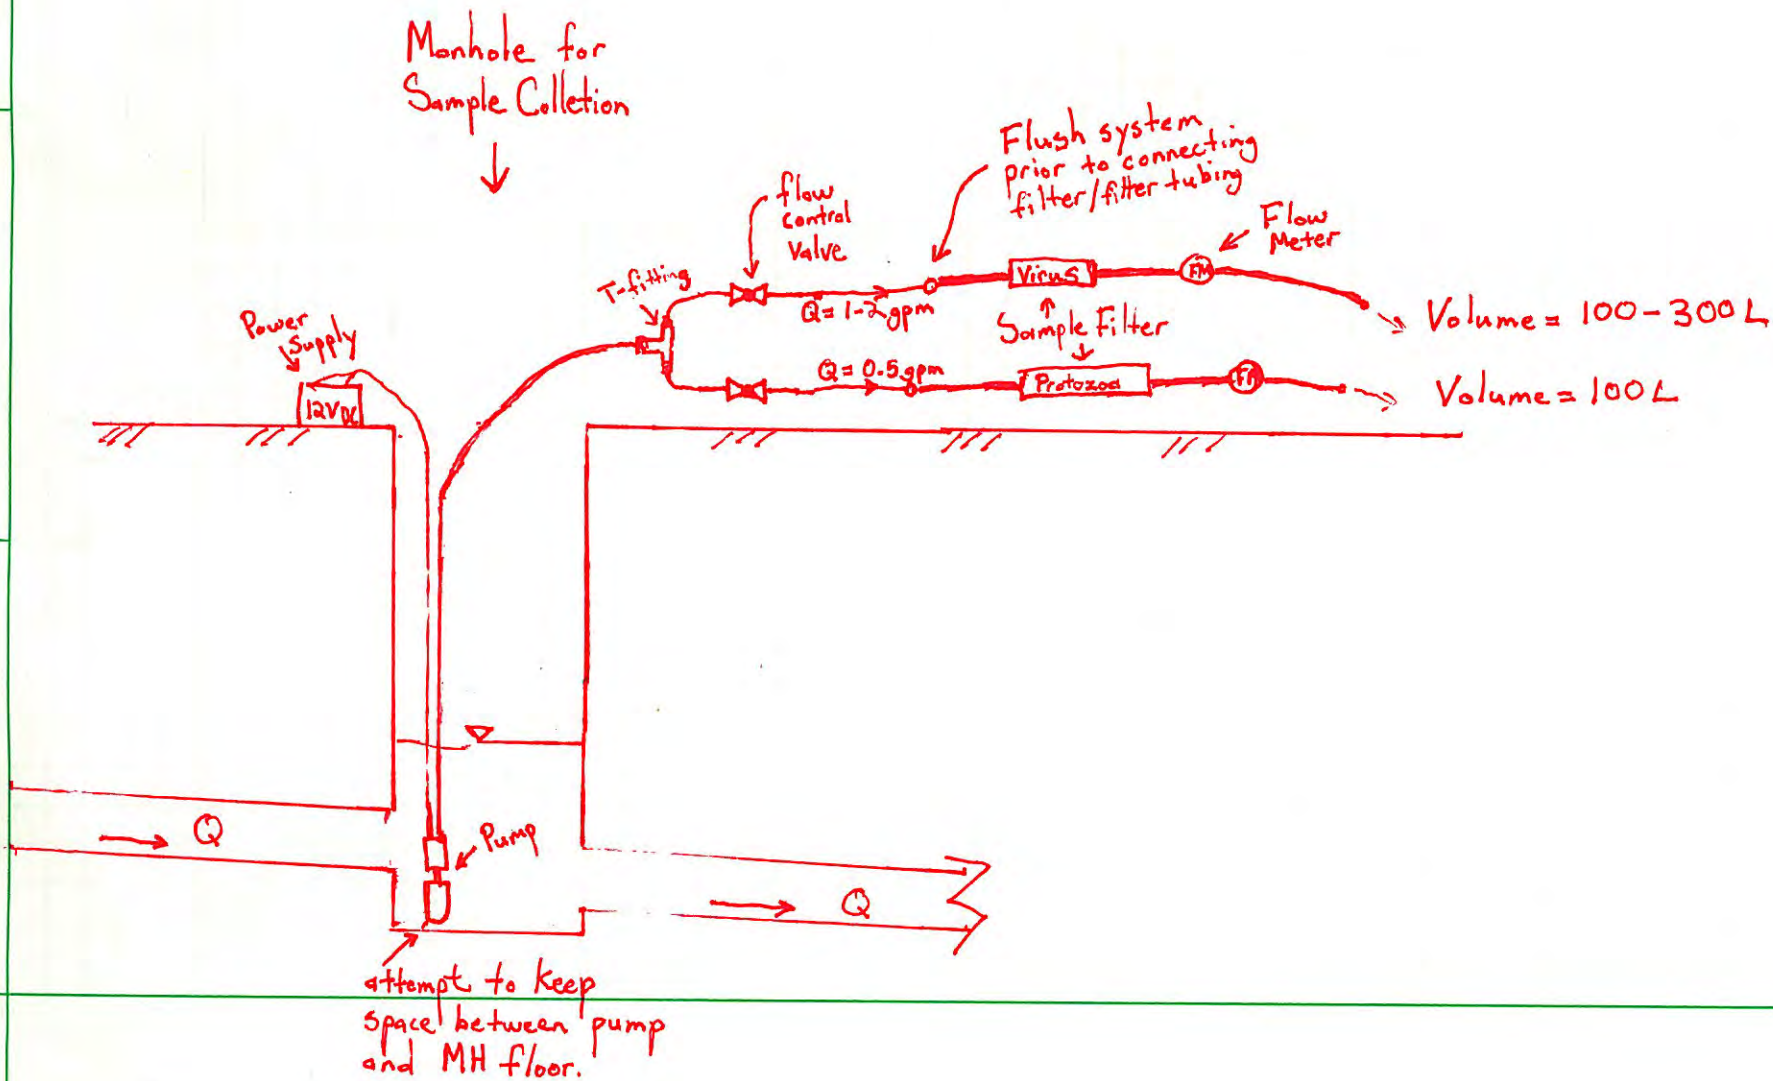 Manhole for
Sample Colletion
Flush system
prior to connecting
filter/filter tubing
flow
control
valve
Flow
Meter
T-fitting
Virus
FM
Q= 1-2gpm
Sample Filter
Volume = 100-300L
Power
Supply
12V DC
Q= 0.5gpm
Protozoa
FM
Volume = 100L
Q
Pump
Q
attempt to keep
space between pump
and MH floor.